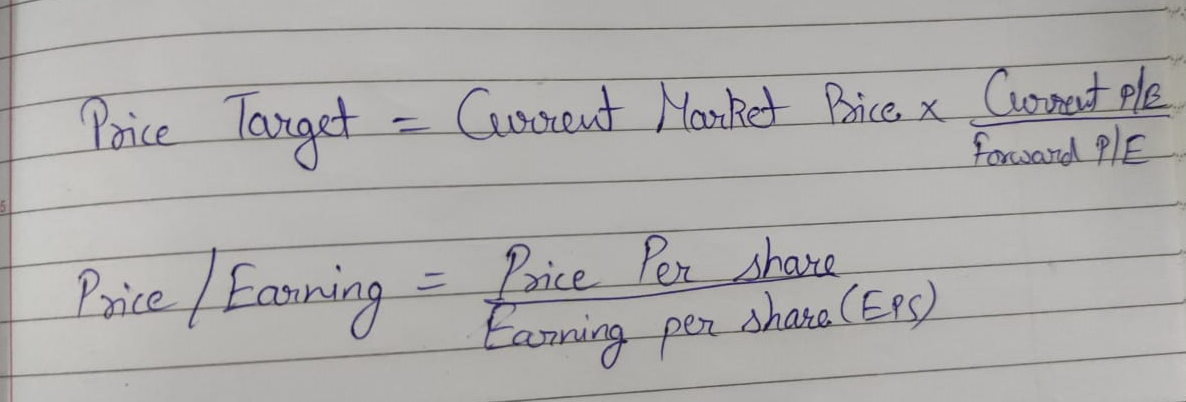 Price Target = Current Market Price x Current P/E
Forward P/E
Price / Earning = Price Per share
Earning per share (EPS)